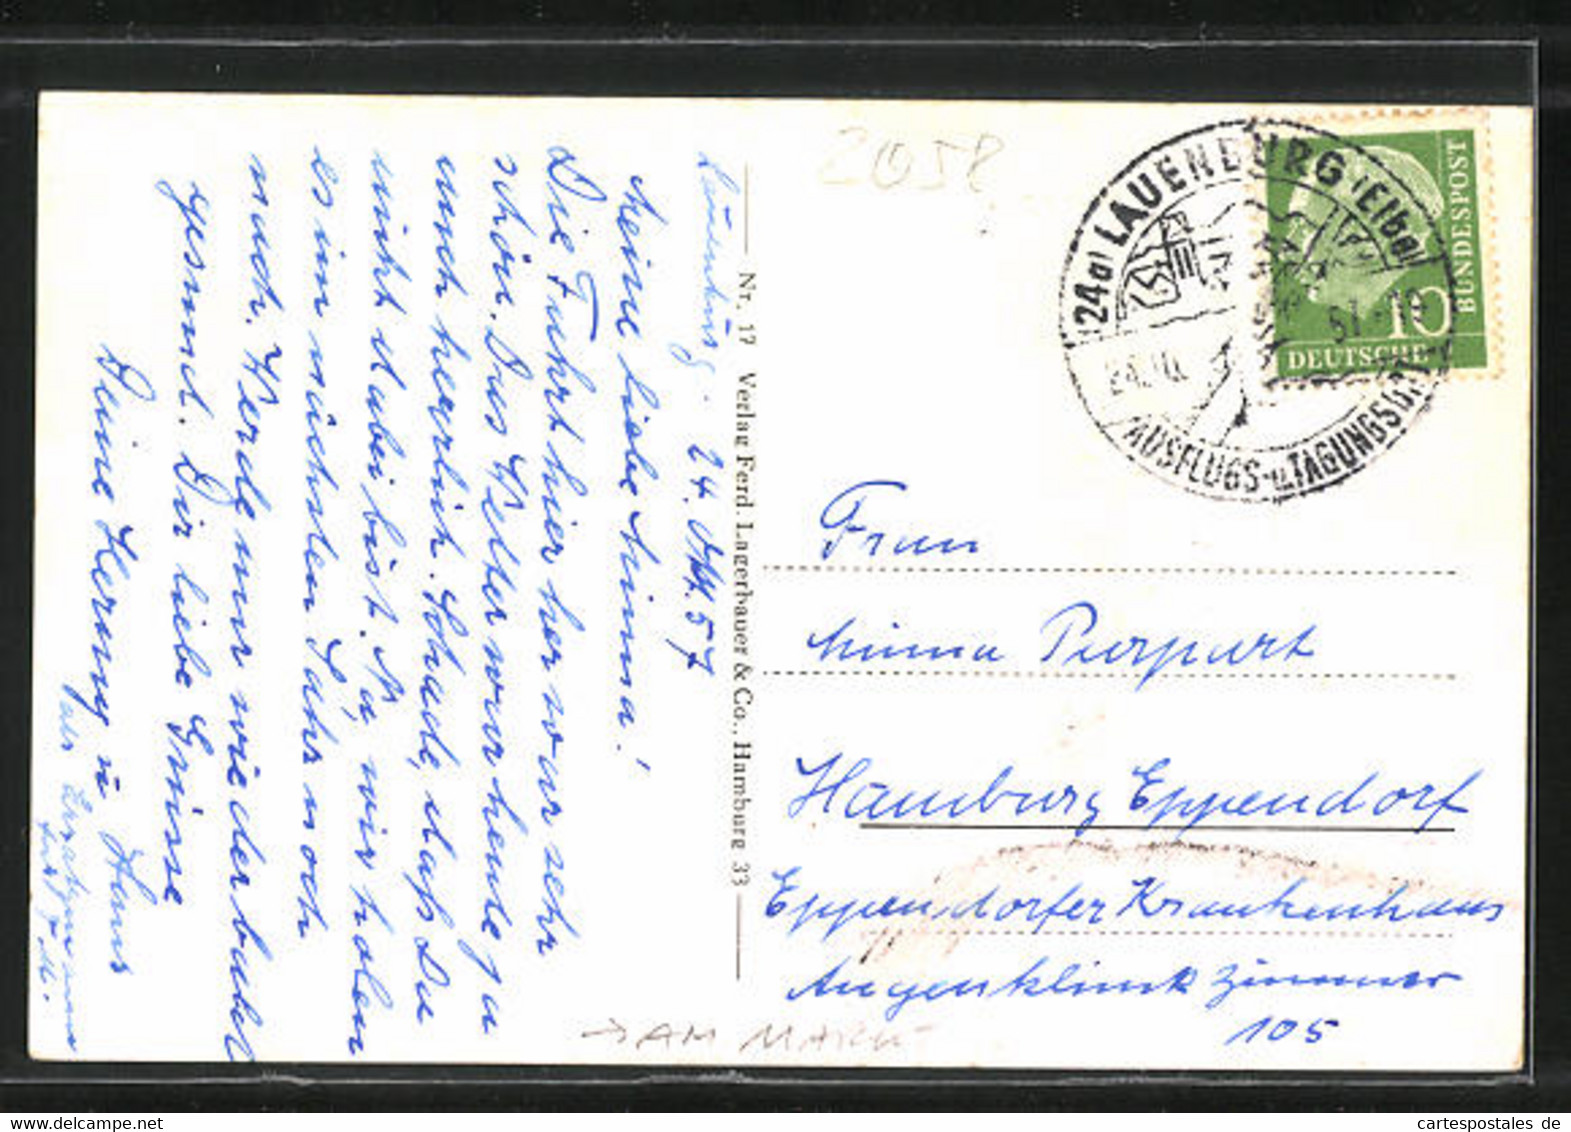 Lauenburg. 24. Okt. 57
Meine liebe Minna!
Die Fahrt hier her war sehr
schön. Das Wetter war heute ja
auch herrlich. Schade, daß Du
nicht dabei bist. Na, wir holen
es im nächsten Jahr noch
nach. Werde nur wieder
gesund. Dir liebe Grüsse
Deine Herung u Hans
als
Nr. 17 Verlag Ferd. Lagerbauer & Co., Hamburg 33
2058
(24a) LAUENBURG (Elbe)
24.10. 57-19
AUSFLUGS- u. TAGUNGSORT
10
DEUTSCHE
BUNDESPOST
Frau
Minna Purpurt
Hamburg Eppendorf
Eppendorfer Krankenhaus
Augenklinik Zimmer
105
→ AM MARKT
www.cartespostales.de